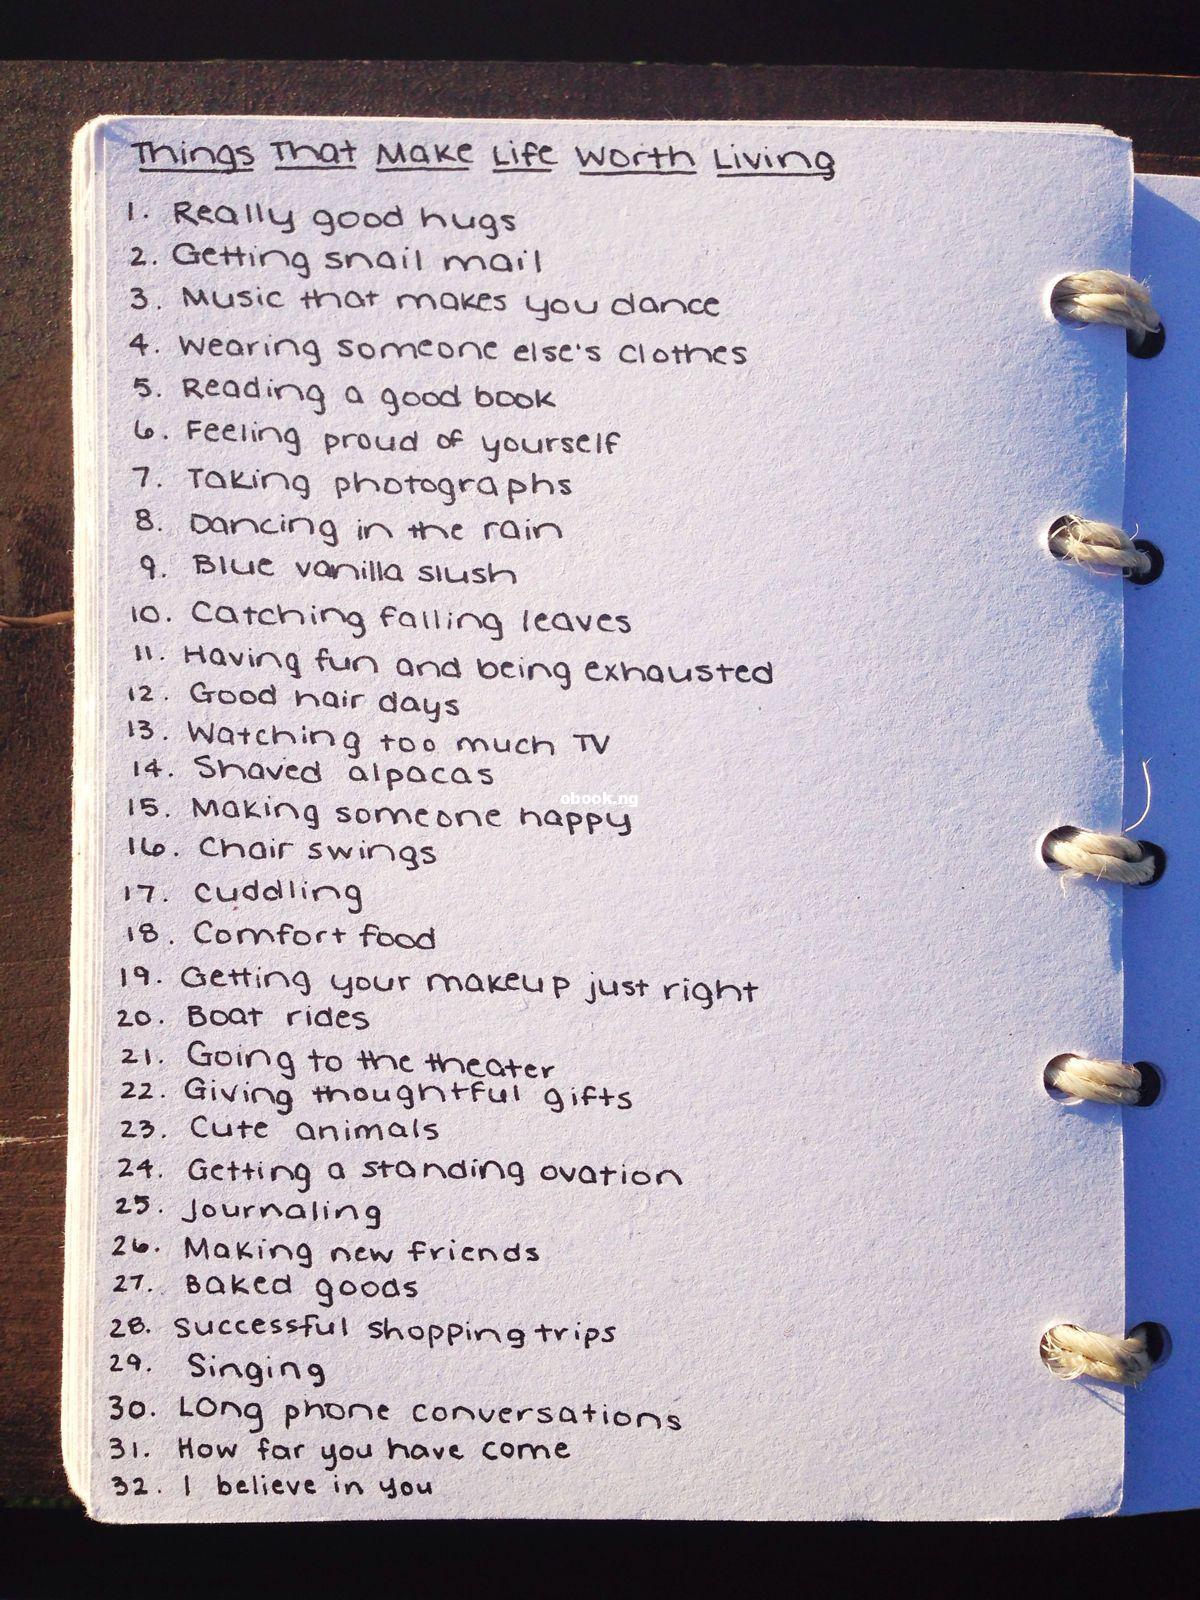 Things That Make Life Worth Living
1. Really good hugs
2. Getting snail mail
3. Music that makes you dance
4. Wearing someone else's clothes
5. Reading a good book
6. Feeling proud of yourself
7. Taking photographs
8. Dancing in the rain
9. Blue vanilla slush
10. Catching falling leaves
11. Having fun and being exhausted
12. Good hair days
13. Watching too much TV
14. Shaved alpacas
obook.ng
15. Making someone happy
16. Chair swings
17. Cuddling
18. Comfort food
19. Getting your makeup just right
20. Boat rides
21. Going to the theater
22. Giving thoughtful gifts
23. Cute animals
24. Getting a standing ovation
25. Journaling
26. Making new friends
27. Baked goods
28. Successful shopping trips
29. Singing
30. Long phone conversations
31. How far you have come
32. I believe in you